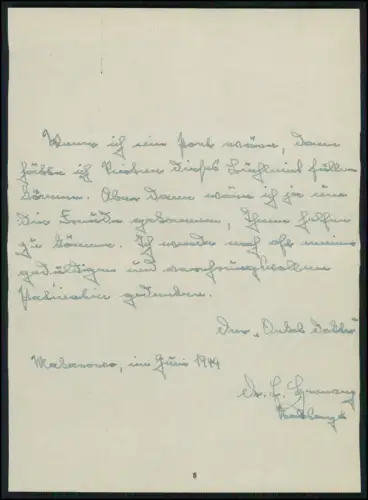 Wenn ich ein Poet wäre, dann
hätte ich Versen dieses Büchlein füllen
können. Aber dann wäre ich ja um
die Freude gekommen, Ihnen helfen
zu können. Ich werde noch oft meiner
geduldigen und
Patientin gedenken.
Der "Onkel Doktor"
im Juni 1949
Dr.